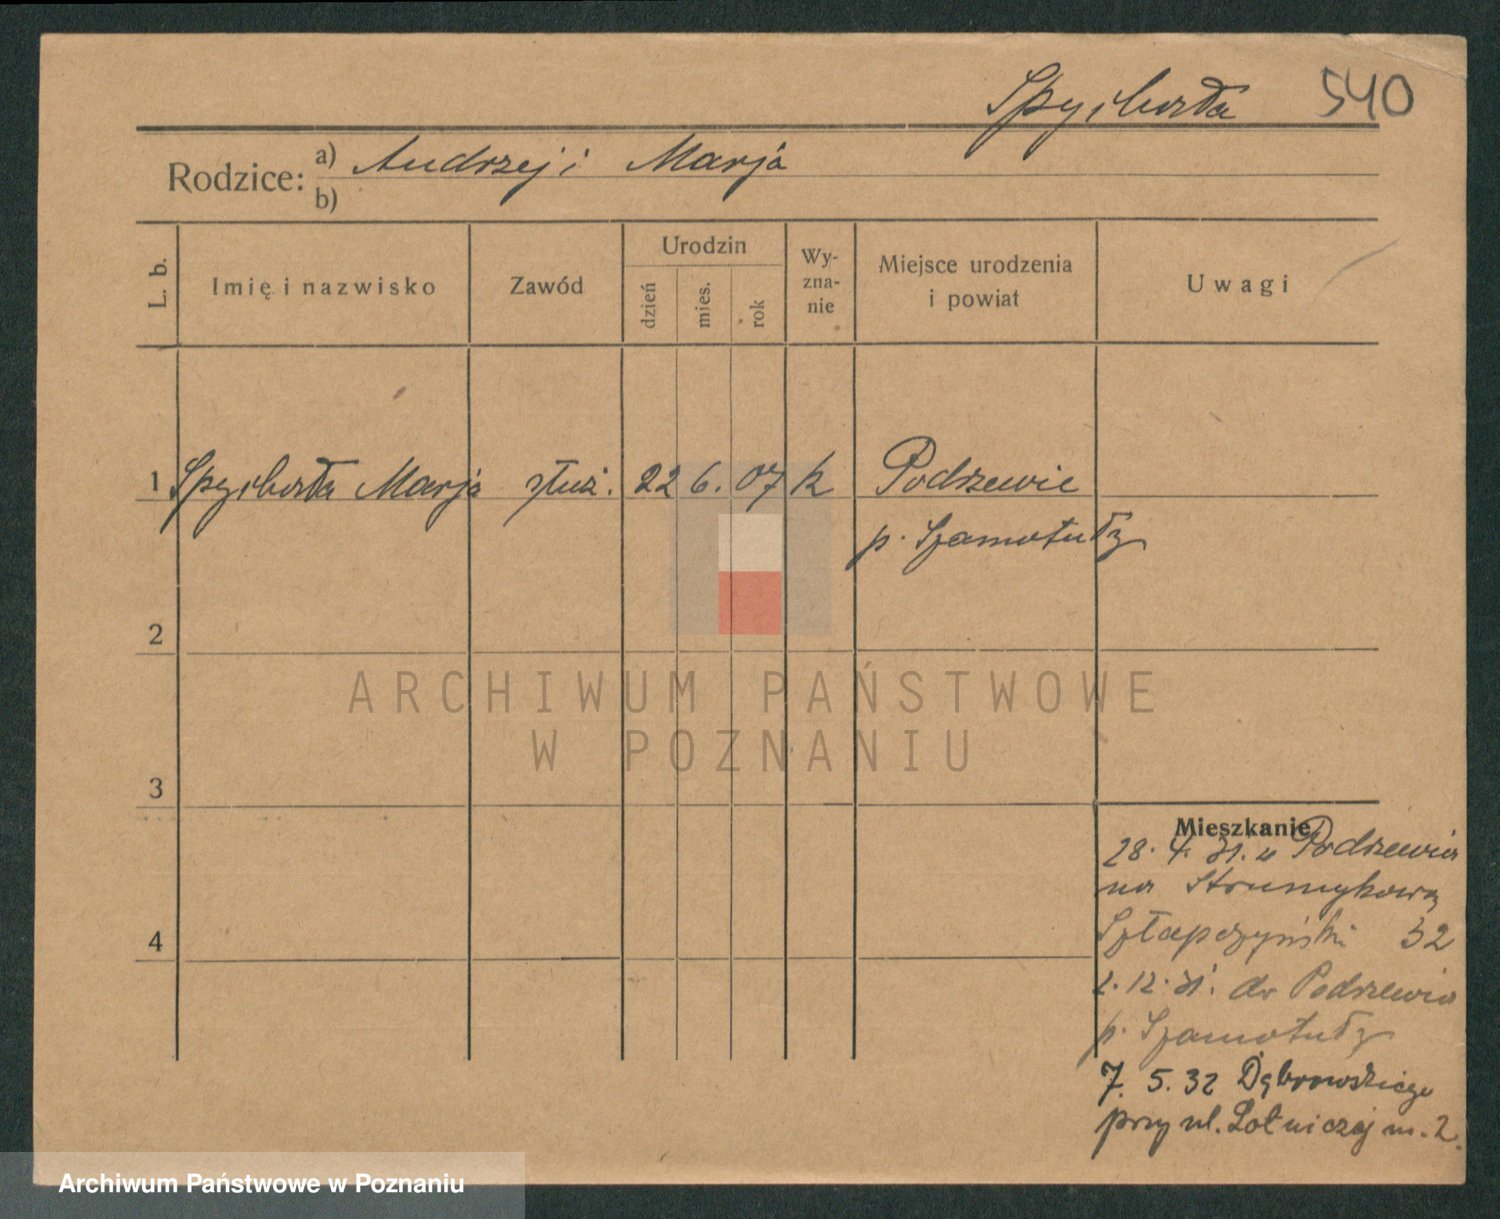 Spychała 540
Rodzice: a) Andrzej i Marja
b)
L. b.
Imię i nazwisko
Zawód
Urodzin
dzień
mies.
rok
Wy-
zna-
nie
Miejsce urodzenia
i powiat
Uwagi
1 Spychała Marja służ. 22 6. 07 k Podrzewie
p. Szamotuły
2
3
4
Mieszkanie
28. 4. 31. z Podrzewia
na Strumykową
Szłapczyński 32
2. 12. 31. do Podrzewia
p. Szamotuły
7. 5. 32 Dąbrowskiego
przy ul. Lotniczej m. 2.
ARCHIWUM PAŃSTWOWE
W POZNANIU
Archiwum Państwowe w Poznaniu